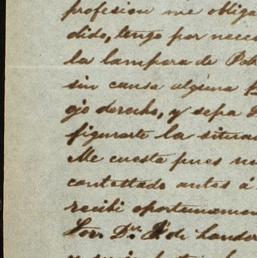 profesion me obliga
dido, tengo por nece
la lampara de
sin causa alguna
ojo derecho, y sepa
figurarte la situa
Me cuesta pues
contestado antes á
recibi oportunamen
Dn. J. de